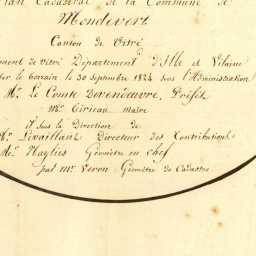 Plan Cadastral de la Commune de
Mondevert
Canton de Vitré
ment de Vitré Département d'Ille et Vilaine
sur le terrain le 30 Septembre 1824 sous l'Administration
Mr. Le Comte De Vendeuvre, Préfet
Mr. Cirieau Maire
et Sous la Direction de
Mr. Levaillant Directeur des Contributions
Mr. Hayliès Géomètre en chef
par Mr. Veron Géomètre du Cadastre